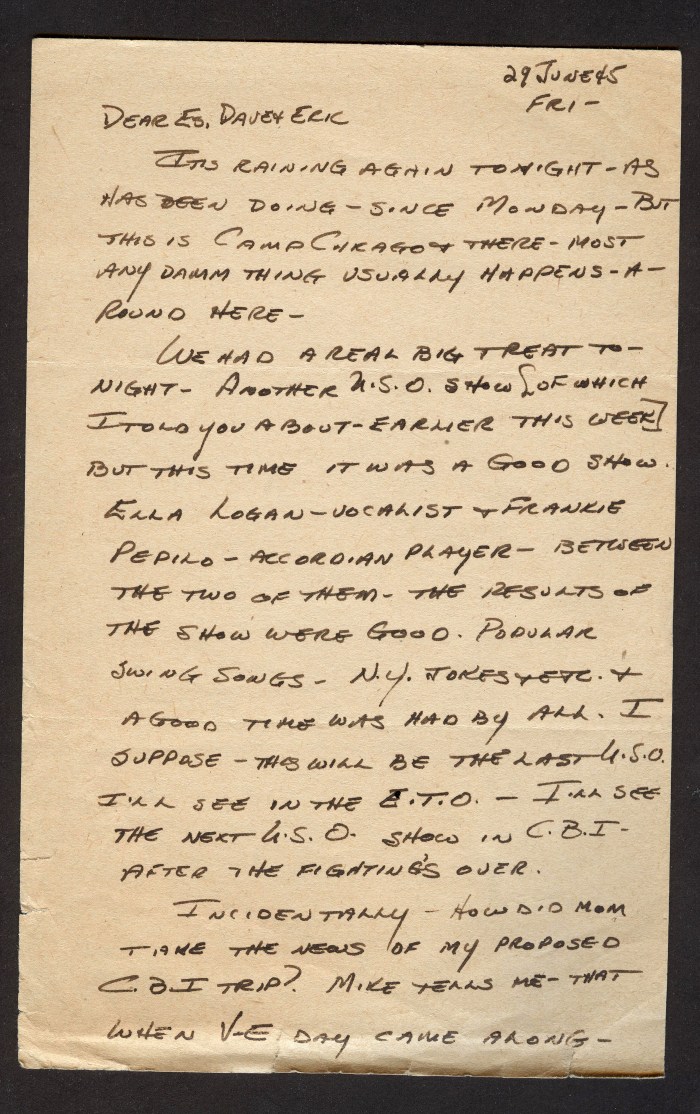 29 JUNE 45
FRI-
DEAR ES, DAVE & ERIC
ITS RAINING AGAIN TONIGHT - AS
HAS BEEN DOING - SINCE MONDAY - BUT
THIS IS CAMP CHICAGO & THERE - MOST
ANY DAMM THING USUALLY HAPPENS - A-
ROUND HERE -
WE HAD A REAL BIG TREAT TO-
NIGHT - ANOTHER U.S.O. SHOW [OF WHICH
I TOLD YOU ABOUT - EARLIER THIS WEEK]
BUT THIS TIME IT WAS A GOOD SHOW.
ELLA LOGAN - VOCALIST & FRANKIE
PEPILO - ACCORDIAN PLAYER - BETWEEN
THE TWO OF THEM - THE RESULTS OF
THE SHOW WERE GOOD. POPULAR
SWING SONGS - N.Y. JOKES & ETC. &
A GOOD TIME WAS HAD BY ALL. I
SUPPOSE - THIS WILL BE THE LAST U.S.O.
I'LL SEE IN THE E.T.O. - I'LL SEE
THE NEXT U.S.O. SHOW IN C.B.I -
AFTER THE FIGHTING'S OVER.
INCIDENTALLY - HOW DID MOM
TAKE THE NEWS OF MY PROPOSED
C.B.I TRIP? MIKE TELLS ME - THAT
WHEN V-E DAY CAME ALONG -